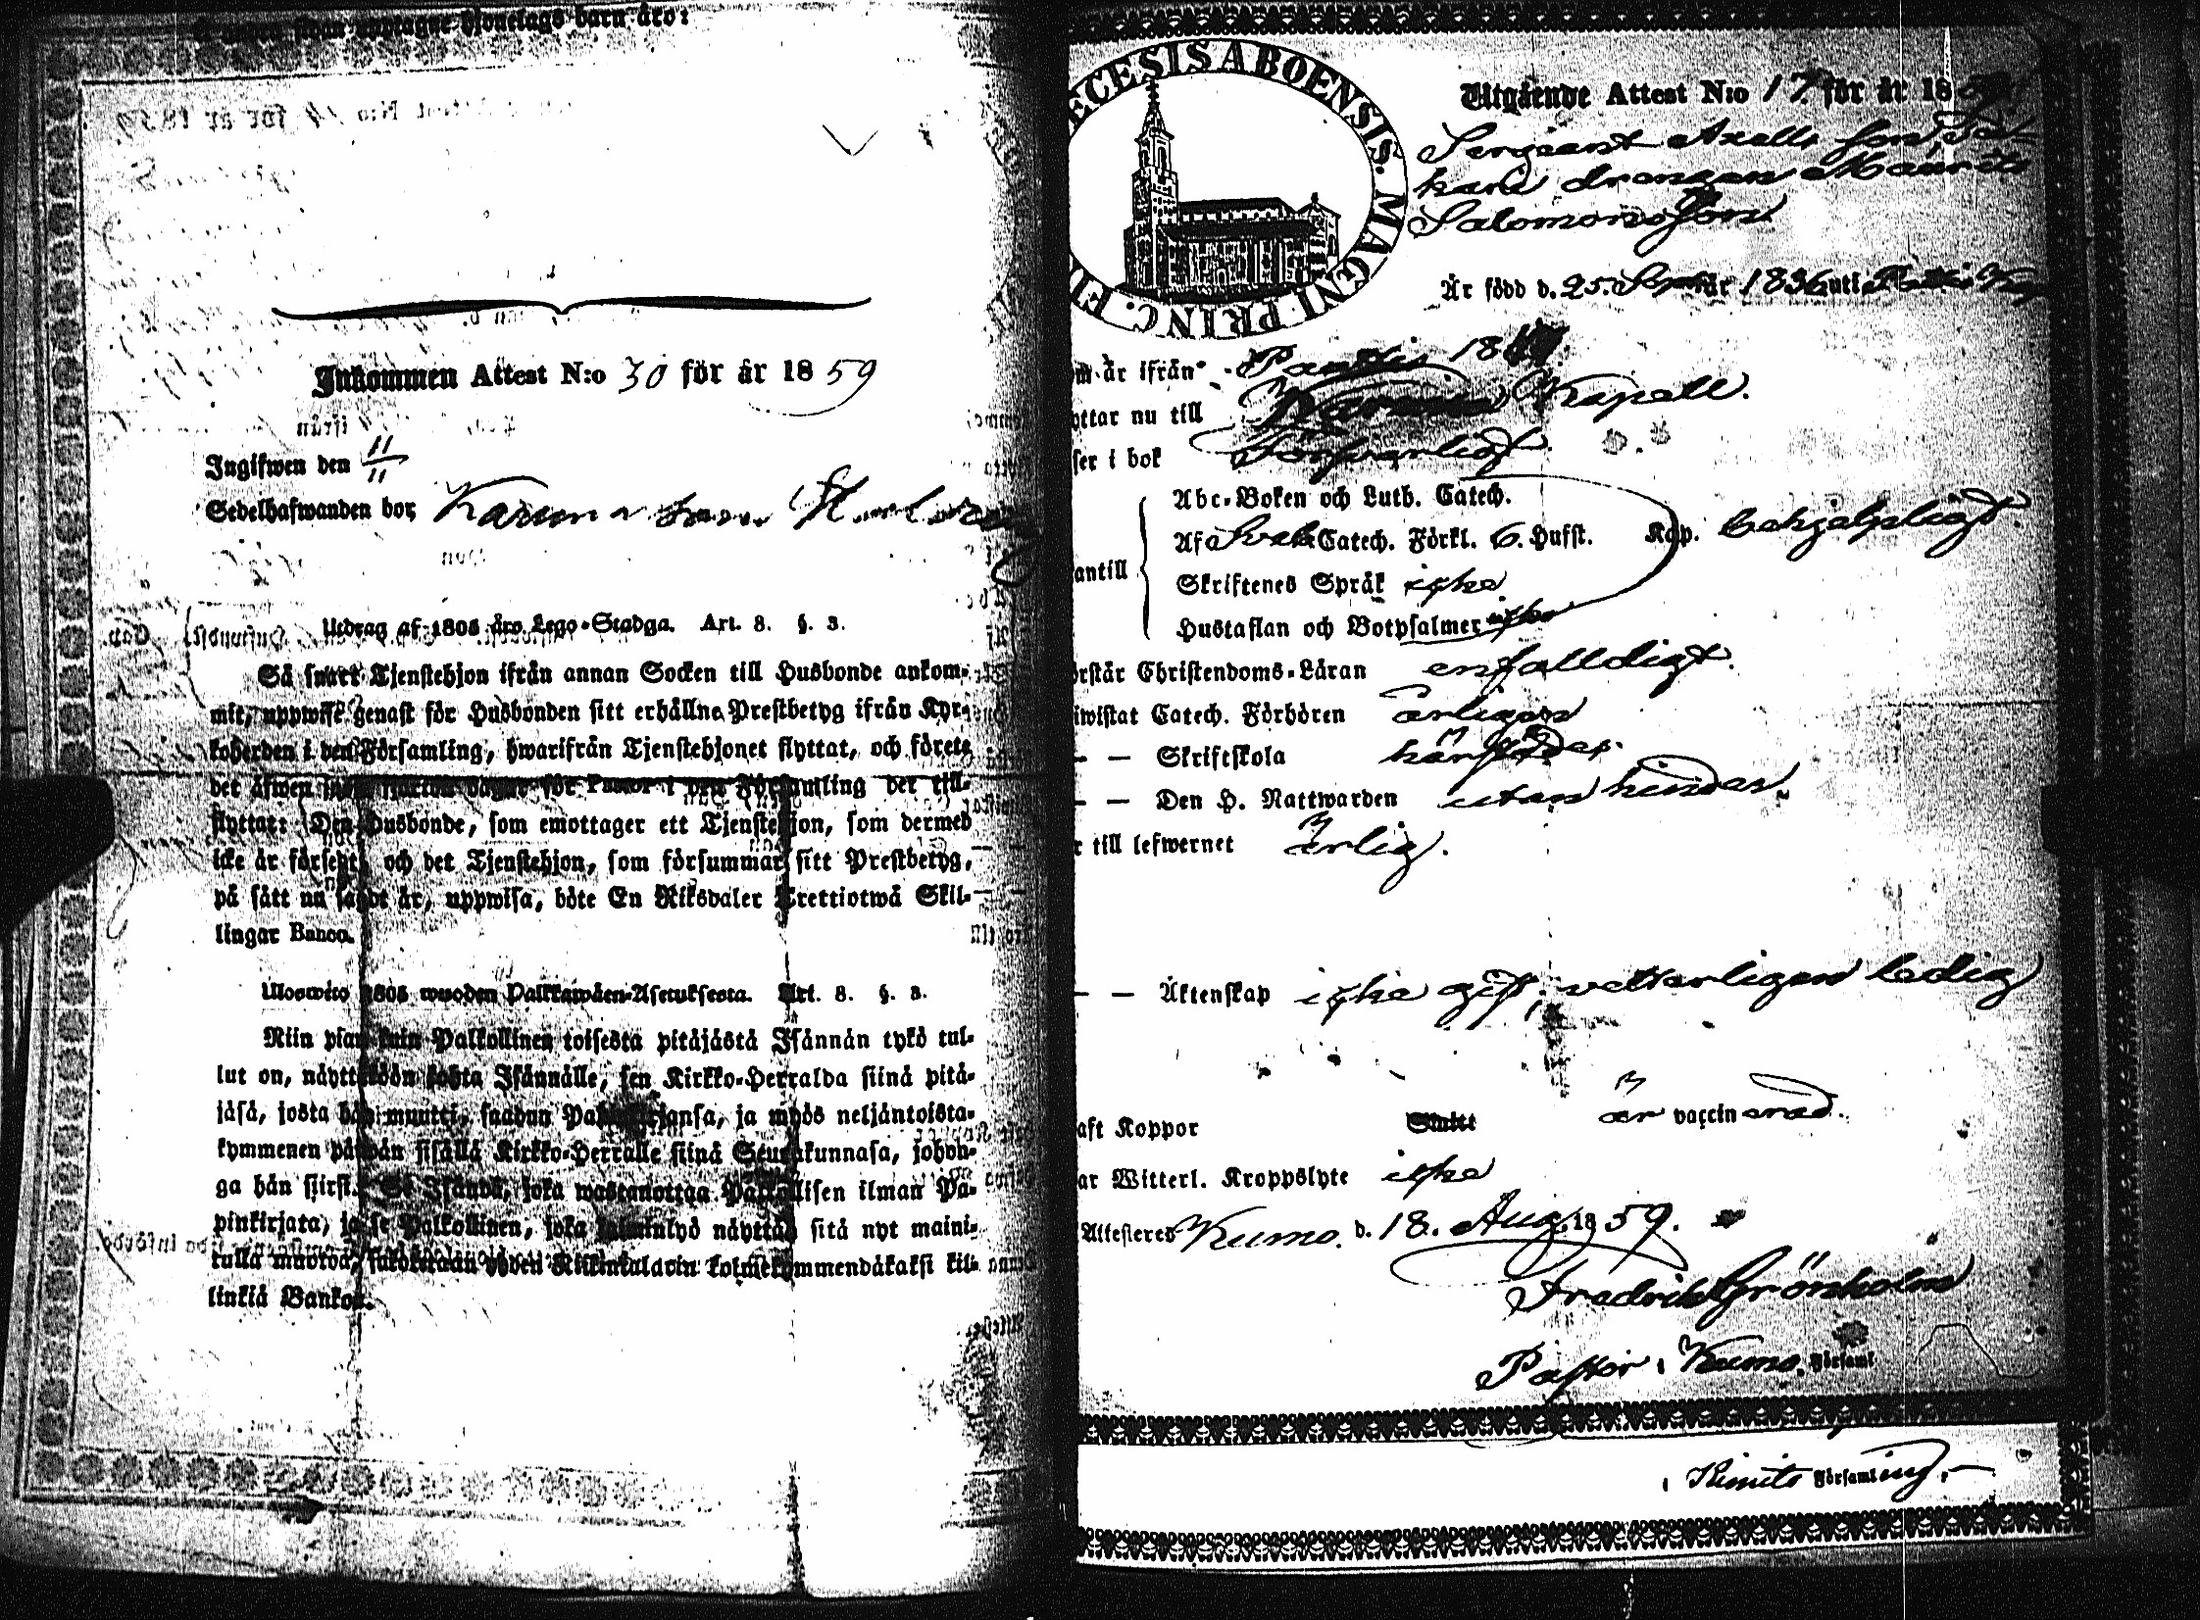 upptagne Hjonelags barn äro:
Inkommen Attest N:o 30 för år 1859
Ingifwen den 11/11
Sedelhafwanden bor Karuna
Utdrag af 1805 års Lego-Stadga. Art. 8. §. 3.
Så snart Tjenstehjon ifrån annan Socken till Husbonde ankom-
mit, uppwise genast för Husbonden sitt erhållne Prestbetyg ifrån Kyr-
koherden i den Församling, hwarifrån Tjenstehjonet flyttat, och förete
det äfwen inom fjorton dagar för Pastor i den Församling det till-
flyttat: Den Husbonde, som emottager ett Tjenstehjon, som dermed
icke är försedt, och det Tjenstehjon, som försummar sitt Prestbetyg,
på sätt nu sagdt är, uppwisa, böte En Riksdaler Trettiotwå Skil-
lingar Banco.
Uloswito 1805 wuoden Palkkawäen-Asetuksesta. Art. 8. §. 3.
Niin pian kuin Palkollinen toisesta pitäjästä Isännän tykö tul-
lut on, näyttäköön kohta Isännälle, sen Kirkko-Herralda siinä pitä-
jäsä, josta hän muutti, saadun Papinkirjansa, ja myös neljäntoista-
kymmenen päiwän sisällä Kirkko-Herralle siinä Seurakunnasa, johon-
ga hän siirsi. Se Isändä, joka wastanottaa Palkollisen ilman Pa-
pinkirjata, ja se Palkollinen, joka laiminlyö näyttää sitä nyt maini-
tulla muotoa, sakoitetaan yhden Riikintalarin kolmekymmendäkaksi kil-
linkiä Bankos.
DIŒCESIS ABOENSIS. MAGNI PRINC. FI
Utgående Attest N:o 17. för år 1859.
Sergeant Axells son, Sa-
kari drengen Maurits
Salomonsson
Är född d. 25. Sept. år 1836 uti
m är ifrån
yttar nu till Karuna Kapell.
ser i bok Försvarligt.
Abc-Boken och Luth. Catech.
Af a Svebe Catech. Förkl. 6. Hufst. Kap. behjelpligt.
antill
Skriftenes Språk icke
Hustaflan och Botpsalmer icke
örstår Christendoms-Läran enfalldigt.
iwistat Catech. Förhören årligen
— — Skriftskola härstädes.
— — Den H. Nattwarden utan hinder.
r till lefwernet ärlig.
— — Äktenskap icke gift, vetterligen ledig
aft Koppor är vaccinerad.
ar Witterl. Kroppslyte icke
Attesteres Kumo. d. 18. Aug. 1859.
Fredrik Grönholm
Pastor i Kumo. Församl
i Kimito Församling.